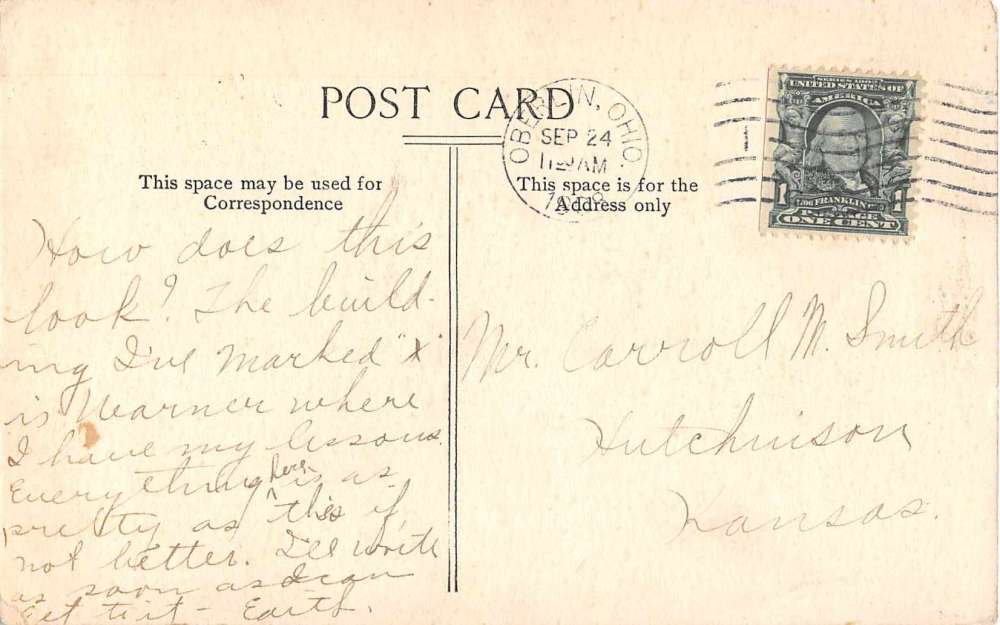 POST CARD
This space may be used for
Correspondence
This space is for the
Address only
OBERLIN, OHIO
SEP 24
AM
SERIES 1902
UNITED STATES OF
AMERICA
1 1
FRANKLIN
POSTAGE
ONE CENT
How does this
look? The build-
ing I've marked "x"
is Warner where
I have my lessons.
Everything here is as
pretty as this if
not better. I'll write
as soon as I can
get to it -
Mr. Carroll M. Smith
Hutchinson
Kansas.